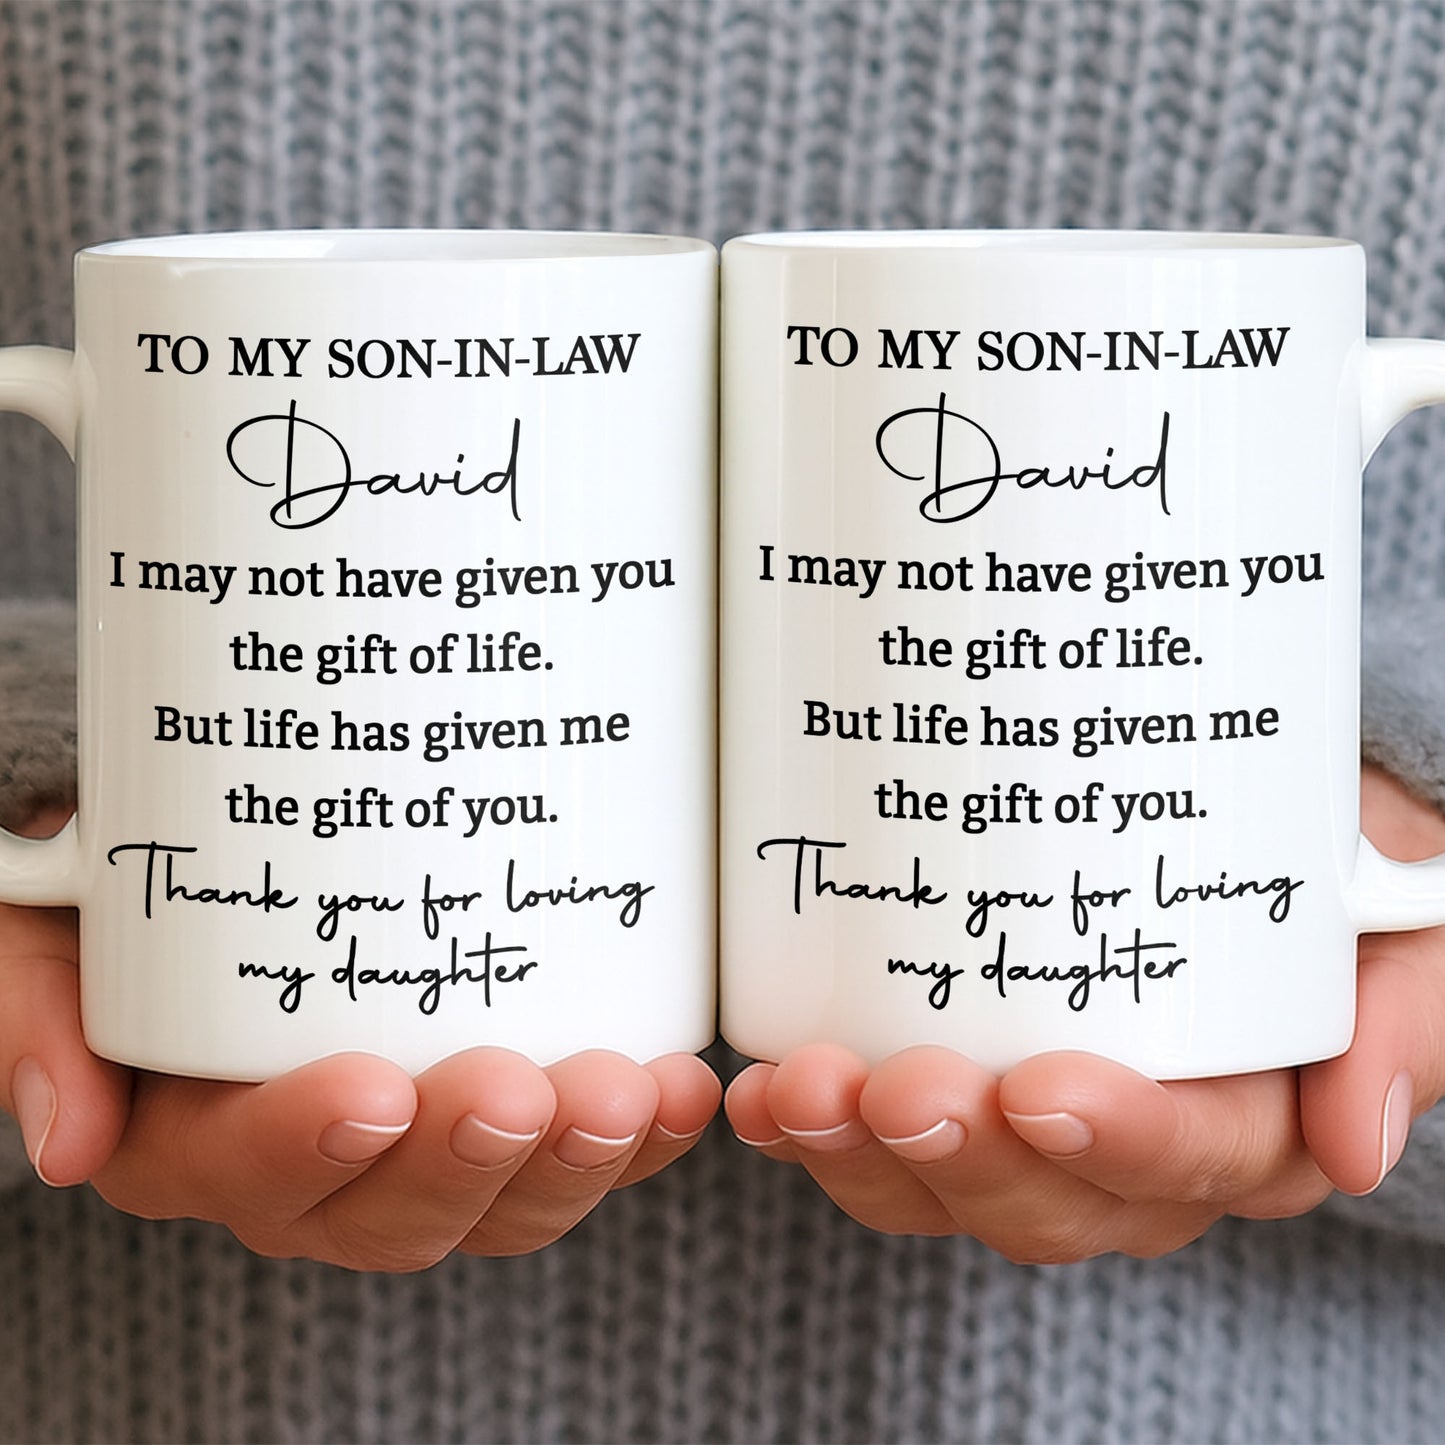 TO MY SON-IN-LAW
David
I may not have given you
the gift of life.
But life has given me
the gift of you.
Thank you for loving
my daughter
TO MY SON-IN-LAW
David
I may not have given you
the gift of life.
But life has given me
the gift of you.
Thank you for loving
my daughter